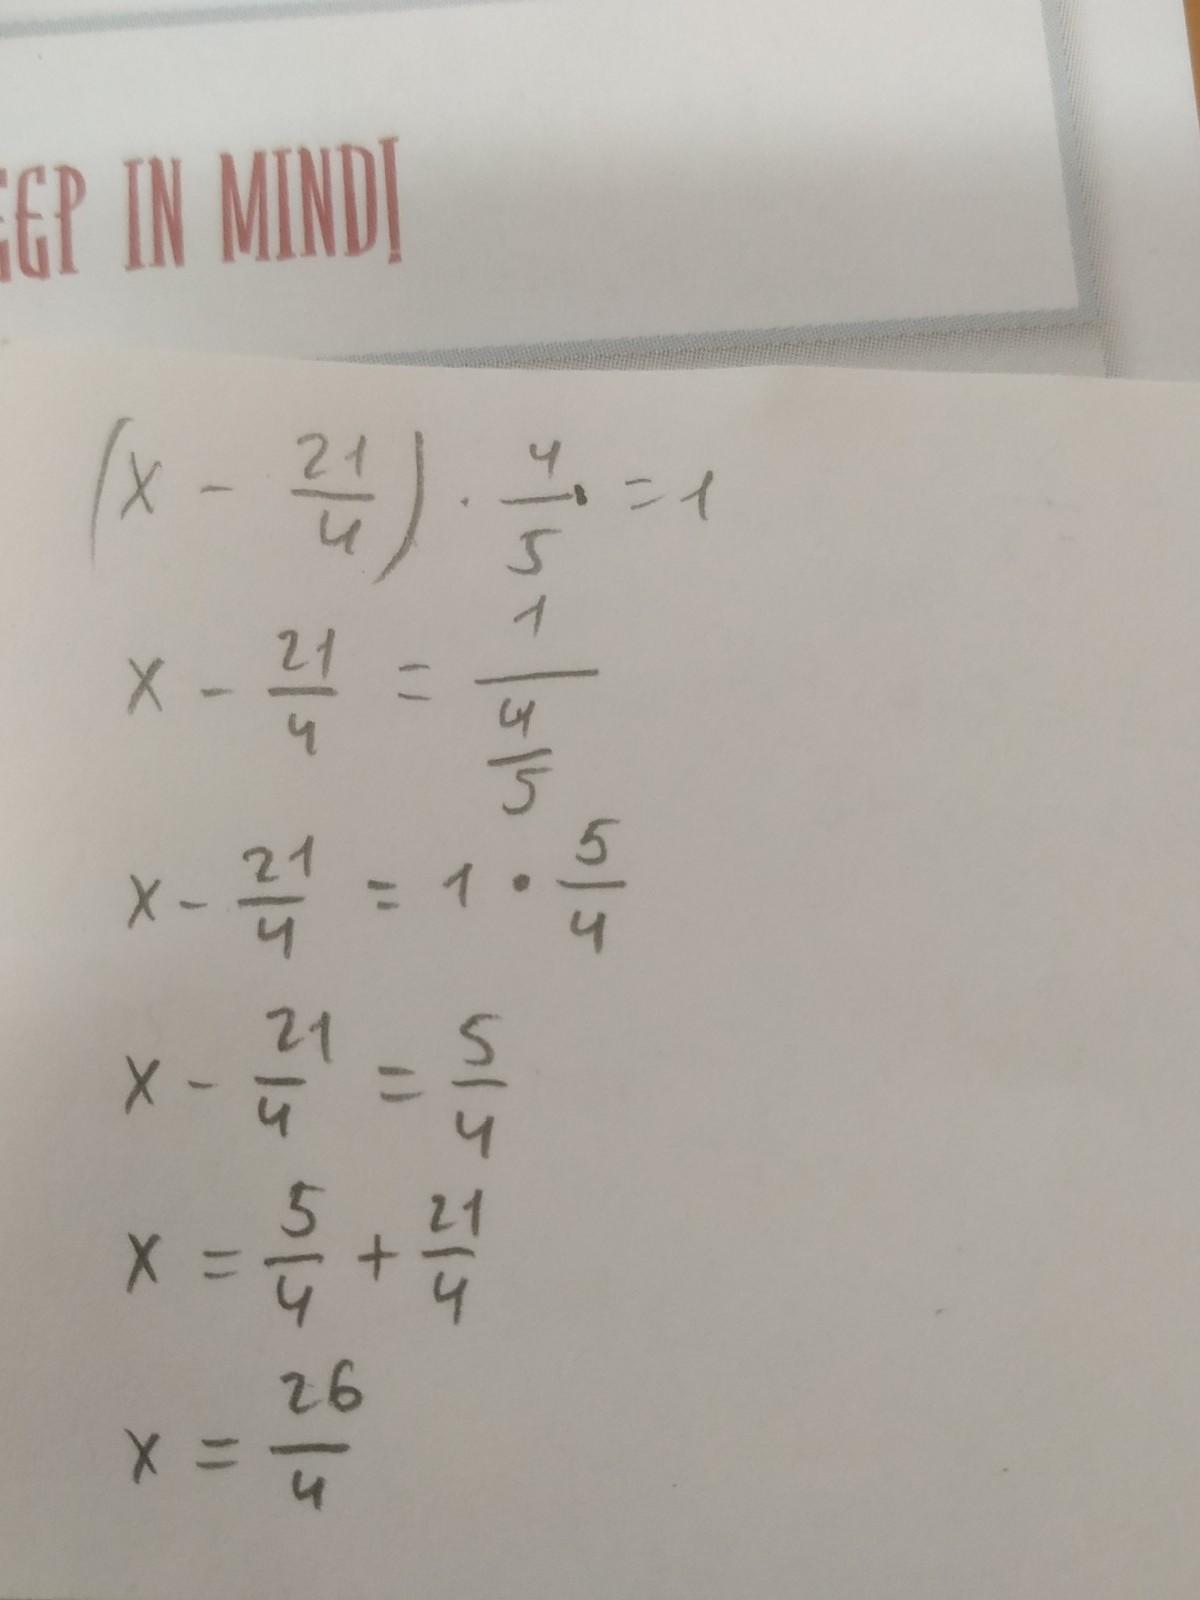 EEP IN MIND!
(x - 21/4) · 4/5 = 1
x - 21/4 = 1/(4/5)
x - 21/4 = 1 · 5/4
x - 21/4 = 5/4
x = 5/4 + 21/4
x = 26/4